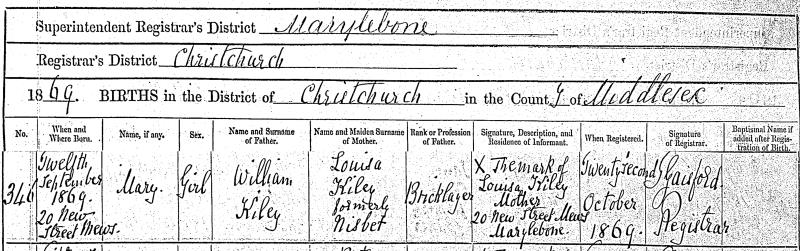 Superintendent Registrar's District Marylebone
Registrar's District Christchurch
1869. BIRTHS in the District of Christchurch in the County of Middlesex
No. When and Where Born. Name, if any. Sex. Name and Surname of Father. Name and Maiden Surname of Mother. Rank or Profession of Father. Signature, Description, and Residence of Informant. When Registered. Signature of Registrar. Baptismal Name if added after Registration of Birth.
346
Twelfth
September
1869.
20 New
Street Mews.
Mary.
Girl
William
Kiley
Louisa
Kiley
formerly
Nisbet
Bricklayer
X The mark of
Louisa Kiley
Mother
20 New Street Mews
Marylebone.
Twenty second
October
1869.
Gaisford.
Registrar